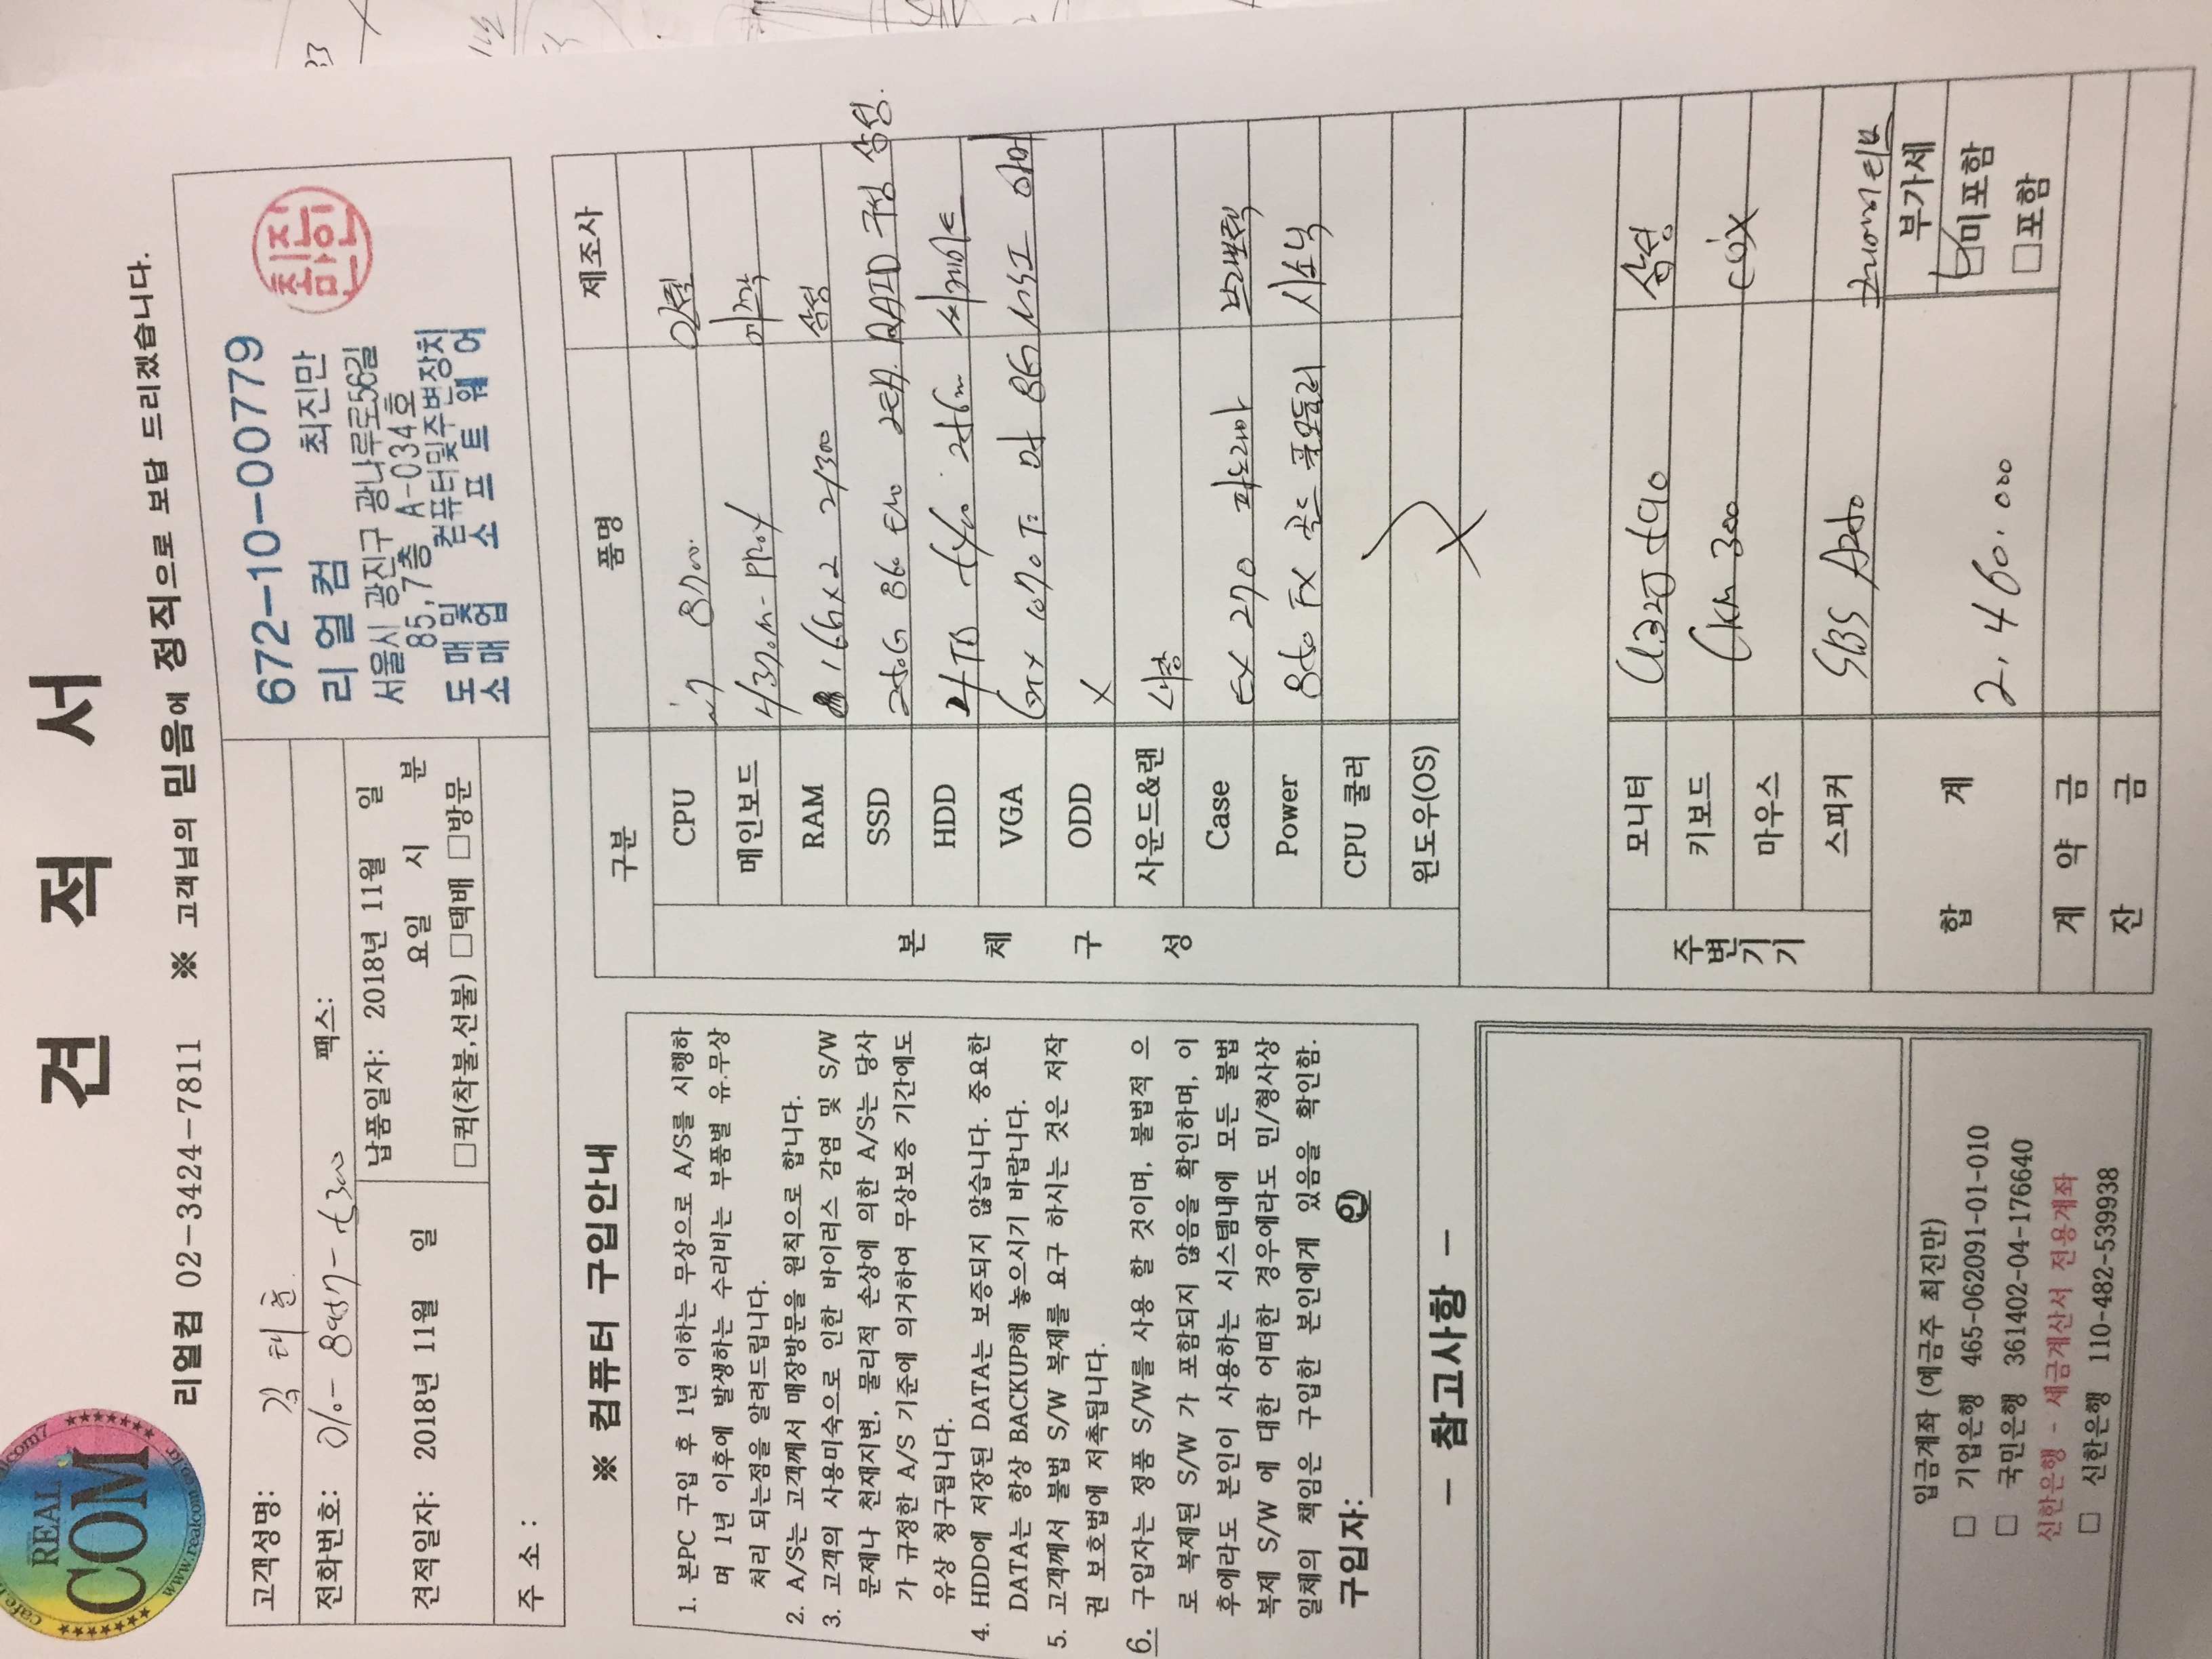 견 적 서
REAL
COM
www.realcom7
리얼컴 02-3424-7811 ※ 고객님의 믿음에 정직으로 보답 드리겠습니다.
고객성명: 김 태
전화번호: 팩스:
견적일자: 2018년 11월 일
납품일자: 2018년 11월 일
요일 시 분
□퀵(착불,선불) □택배 □방문
주 소 :
672-10-00779
리얼컴 최진만
서울시 광진구 광나루로56길
85,7층 A-034호
도매및 컴퓨터및주변장치
소매업 소프트웨어
※ 컴퓨터 구입안내
1. 본PC 구입 후 1년 이하는 무상으로 A/S를 시행하
며 1년 이후에 발생하는 수리비는 부품별 유.무상
처리 되는점을 알려드립니다.
2. A/S는 고객께서 매장방문을 원칙으로 합니다.
3. 고객의 사용미숙으로 인한 바이러스 감염 및 S/W
문제나 천재지변, 물리적 손상에 의한 A/S는 당사
가 규정한 A/S 기준에 의거하여 무상보증 기간에도
유상 청구됩니다.
4. HDD에 저장된 DATA는 보증되지 않습니다. 중요한
DATA는 항상 BACKUP해 놓으시기 바랍니다.
5. 고객께서 불법 S/W 복제를 요구 하시는 것은 저작
권 보호법에 저촉됩니다.
6. 구입자는 정품 S/W를 사용 할 것이며, 불법적 으
로 복제된 S/W 가 포함되지 않음을 확인하며, 이
후에라도 본인이 사용하는 시스템내에 모든 불법
복제 S/W 에 대한 어떠한 경우에라도 민/형사상
일체의 책임은 구입한 본인에게 있음을 확인함.
구입자: 인
- 참고사항 -
입금계좌 (예금주 최진만)
□ 기업은행 465-062091-01-010
□ 국민은행 361402-04-176640
신한은행 - 세금계산서 전용계좌
□ 신한은행 110-482-539938
구분 품명 제조사
본 체 구 성
CPU i7 8700. 인텔
메인보드 B370M-PRO4 에즈락
RAM 16G×2 21300 삼성
SSD 250G 860 EVO 2EA. RAID 구성 삼성.
HDD 4TB 5400 256m 씨게이트
VGA GTX 1070 Ti 8G MSI 아머
ODD X
사운드&랜 내장
Case EX 270 파노라마 브라보텍
Power 850 FX 골드 풀모듈러 시소닉
CPU 쿨러
윈도우(OS) X
주변기기
모니터 U32J590 삼성
키보드 CKM 300 COX
마우스
스피커 SBS A250 크리에이티브
합 계 2.460.000
부가세
☑미포함
□포함
계 약 금
잔 금